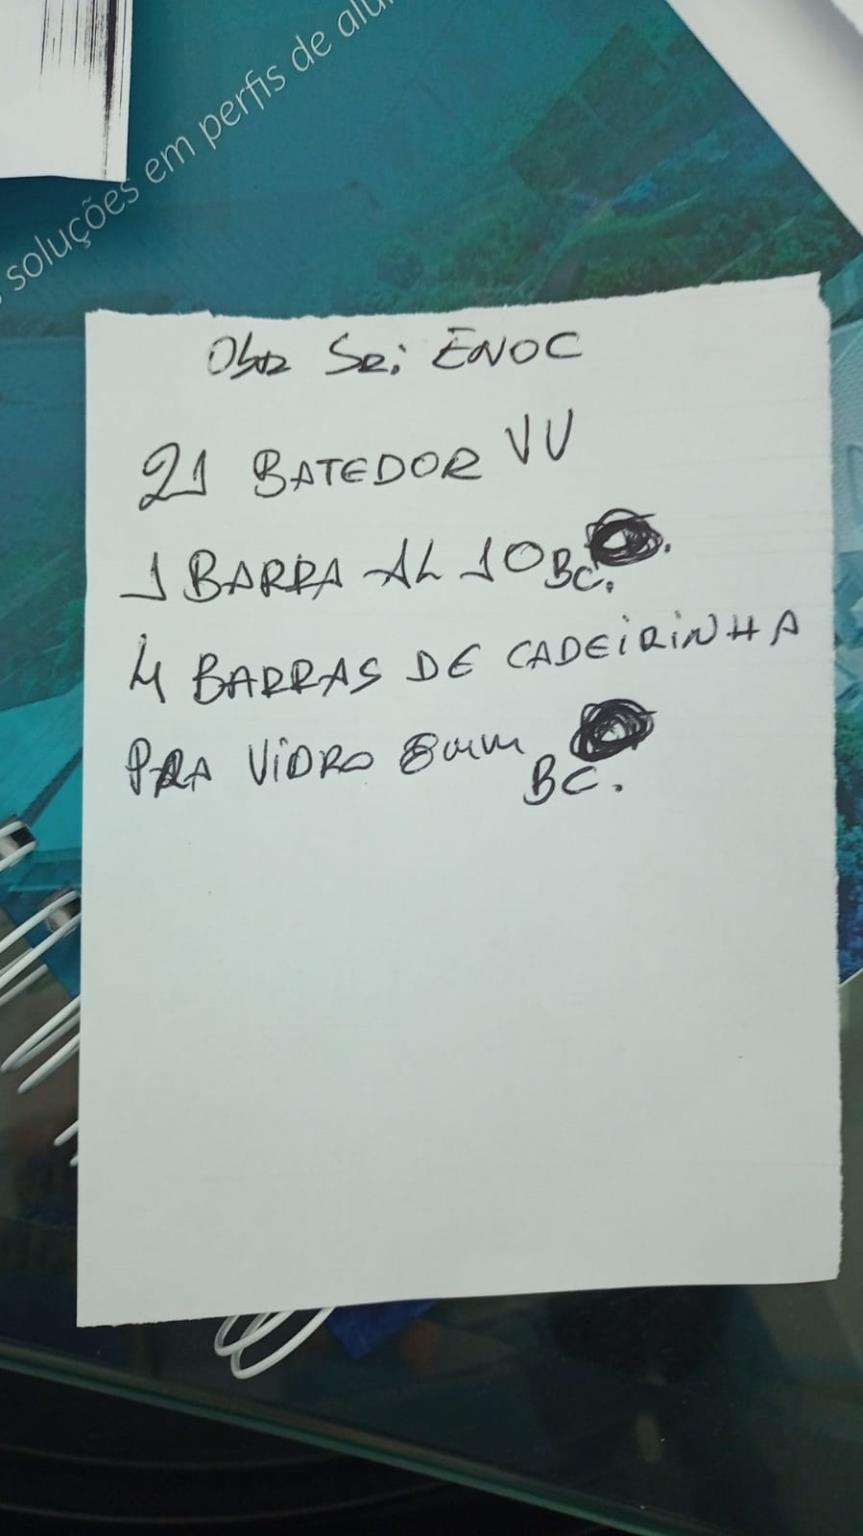 soluções em perfis de alu
Obra Sr; ENOC
21 BATEDOR VV
1 BARRA AL 10 BC.
4 BARRAS DE CADEiRiNHA
PRA ViDRO 8mm BC.